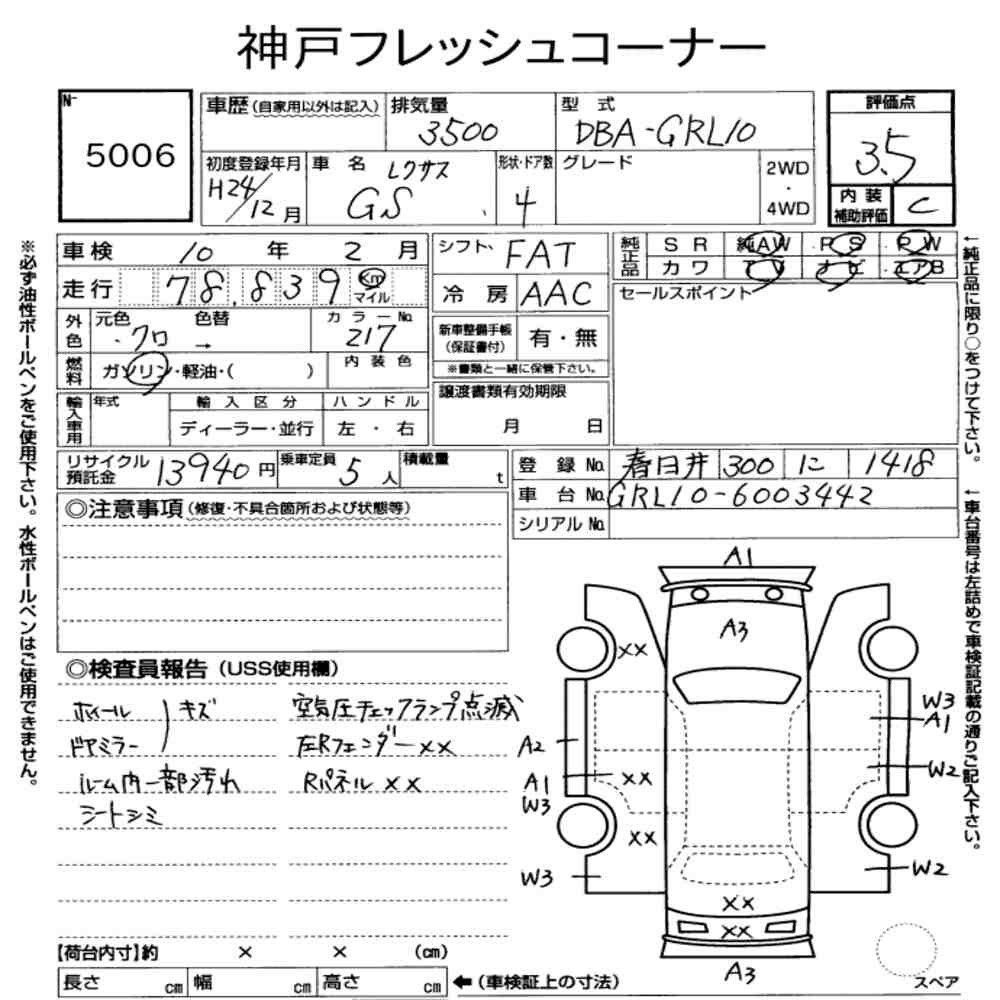 神戸フレッシュコーナー
N-
5006
車歴 (自家用以外は記入)
排気量
3500
型式
DBA-GRL10
評価点
3.5
初度登録年月
H24/12月
車名 レクサス
GS
形状・ドア数
4
グレード
2WD
・
4WD
内装
補助評価
C
車検 10年 2月
シフト FAT
純正品
SR 純AW PS PW
カワ TV ナビ エアB
走行 78,839 Km
マイル
冷房 AAC
セールスポイント
外色
元色 色替
・クロ →
カラーNo.
217
新車整備手帳
(保証書付)
有・無
※書類と一緒に保管下さい。
燃料
ガソリン・軽油・( )
内装色
譲渡書類有効期限
月 日
輸入車用
年式
輸入区分
ディーラー・並行
ハンドル
左・右
リサイクル
預託金
13940円
乗車定員
5人
積載量
t
登録No. 春日井 300 に 1418
車台No. GRL10-6003442
シリアルNo.
◎注意事項 (修復・不具合箇所および状態等)
◎検査員報告 (USS使用欄)
ホイール
ドアミラー
キズ
ルーム内一部汚れ
シートシミ
空気圧チェックランプ点滅
左Rフェンダー××
Rパネル××
A1
A3
××
A2
A1
W3
××
××
W3
W3
A1
W2
W2
××
××
A3
スペア
【荷台内寸】約 × × (cm)
長さ cm 幅 cm 高さ cm
←(車検証上の寸法)
※必ず油性ボールペンをご使用下さい。水性ボールペンはご使用できません。
←純正品に限り○をつけて下さい。
←車台番号は左詰めで車検証記載の通りご記入下さい。